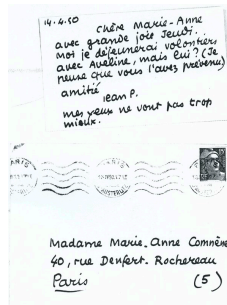 14.4.50
Chère Marie-Anne
avec grande joie Jeudi.
moi je déjeunerai volontiers
avec Aveline, mais lui? (Je
pense que vous l'avez prévenu)
amitié
Jean P.
mes yeux ne vont pas trop
mieux.
PARIS
Madame Marie-Anne Comnène
40, rue Denfert-Rochereau
Paris (5)